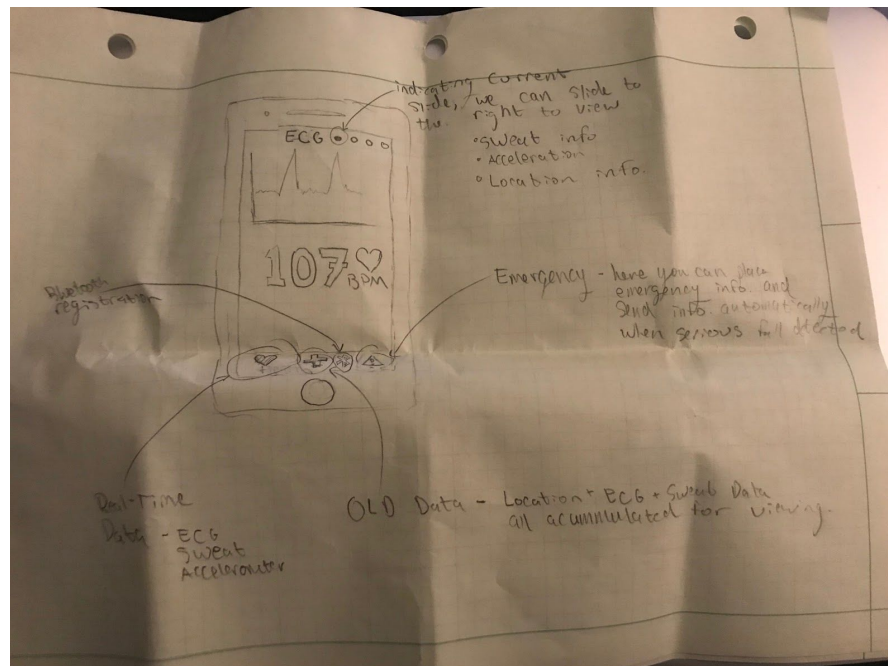 indicating current
slide, we can slide to
the right to view
• sweat info
• Acceleration
• Location info.
ECG
107
BPM
Bluetooth
registration
Emergency - here you can place
emergency info. and
send info. automatically
when serious fall detected
Real-Time
Data - ECG
sweat
Accelerometer
OLD Data - Location + ECG + Sweat Data
all acummulated for viewing.